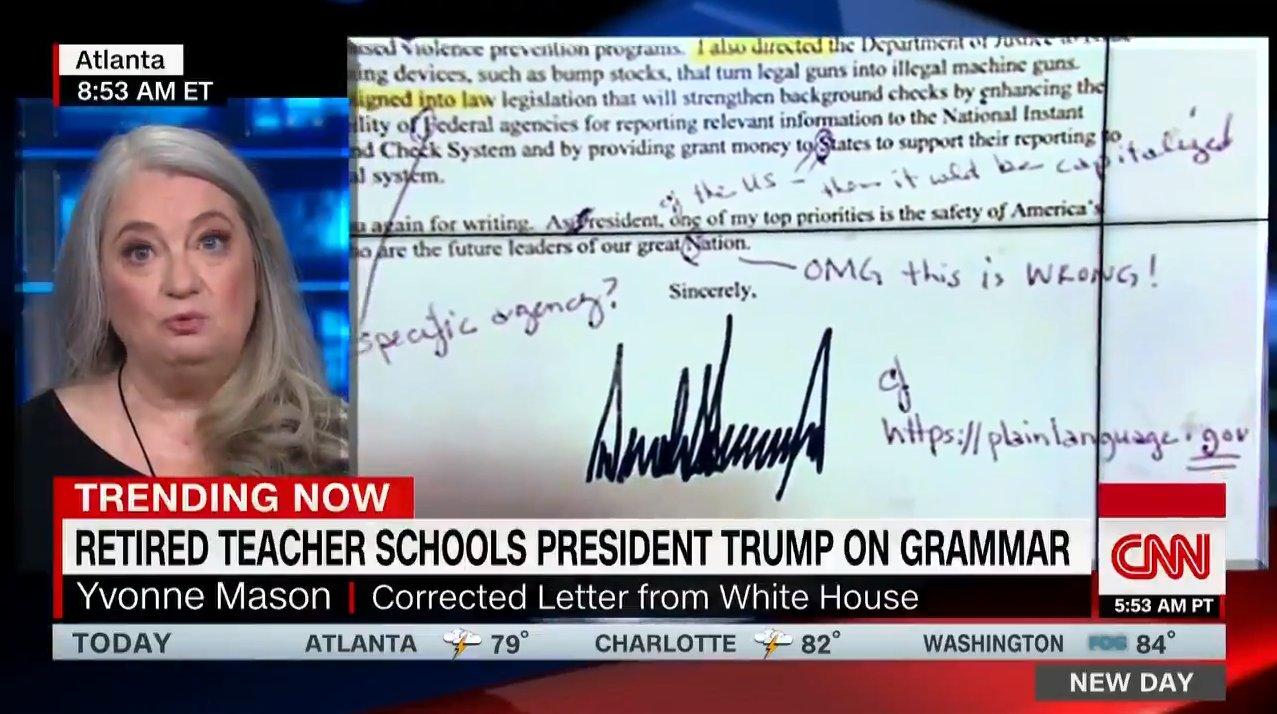 Atlanta
8:53 AM ET
Violence prevention programs. I also directed the Department of Justice to
ing devices, such as bump stocks, that turn legal guns into illegal machine guns.
igned into law legislation that will strengthen background checks by enhancing the
lity of Federal agencies for reporting relevant information to the National Instant
nd Check System and by providing grant money to States to support their reporting to
al system.
of the US - then it wld be capitalized
u again for writing. As President, one of my top priorities is the safety of America's
ho are the future leaders of our great Nation.
OMG this is WRONG!
specific agency?
Sincerely,
cf
https://plainlanguage.gov
TRENDING NOW
RETIRED TEACHER SCHOOLS PRESIDENT TRUMP ON GRAMMAR
Yvonne Mason | Corrected Letter from White House
CNN
5:53 AM PT
TODAY ATLANTA 79° CHARLOTTE 82° WASHINGTON FOG 84°
NEW DAY